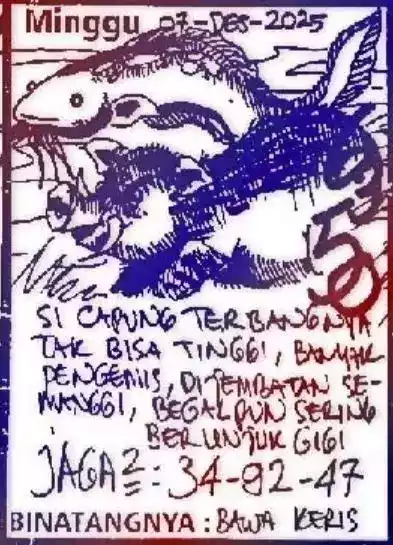 Minggu 07-DES-2025
SI CAPUNG TERBANGNYA
TAK BISA TINGGI, BANYAK
PENGEMIS, DIJEMBATAN SE-
MANGGI, BEGALPUN SERING
BERUNJUK GIGI
JAGA2 =: 34-92-47
BINATANGNYA : BAWA KERIS